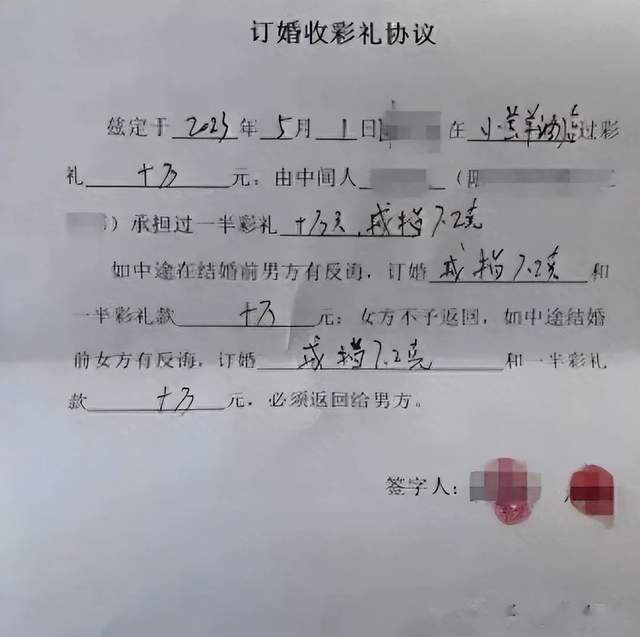 订婚收彩礼协议
兹定于 2023 年 5 月 1 日 在 小羊酒店过彩
礼 十万 元；由中间人 （阳
）承担过一半彩礼 十万元，戒指7.2克
如中途在结婚前男方有反海，订婚 戒指7.2克 和
一半彩礼款 十万 元；女方不予返回，如中途结婚
前女方有反诲，订婚 戒指7.2克 和一半彩礼
款 十万 元，必须返回给男方。
签字人：